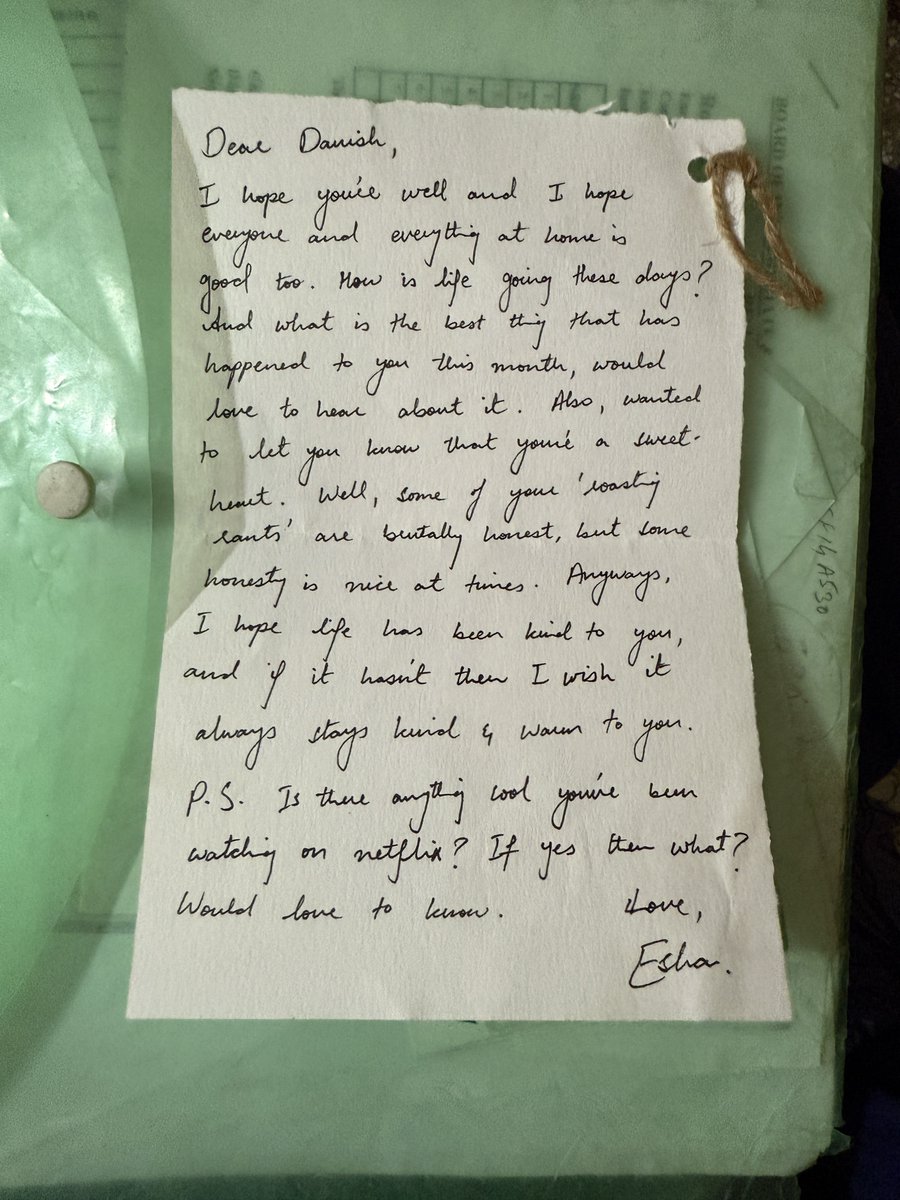 Dear Danish,
I hope you're well and I hope
everyone and everything at home is
good too. How is life going these days?
And what is the best thing that has
happened to you this month, would
love to hear about it. Also, wanted
to let you know that you're a sweet-
heart. Well, some of your 'roasting
rants' are brutally honest, but some
honesty is nice at times. Anyways,
I hope life has been kind to you,
and if it hasn't then I wish it
always stays kind & warm to you.
P.S. Is there anything cool you've been
watching on netflix? If yes then what?
Would love to know. Love,
Esha.
BOARD OF